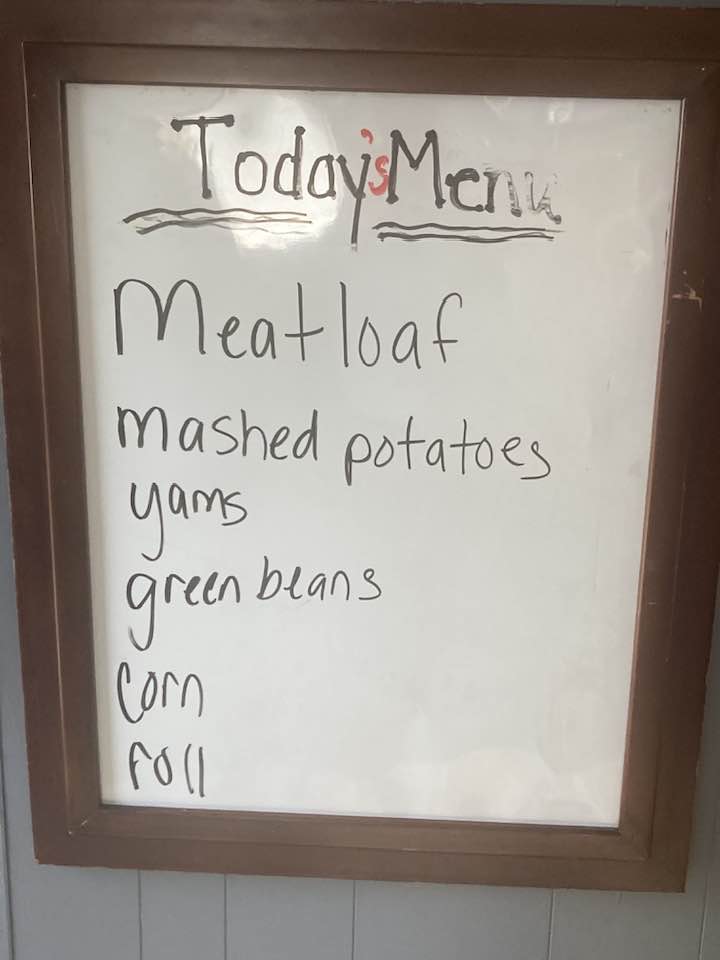 Today's Menu
Meatloaf
mashed potatoes
yams
green beans
corn
roll